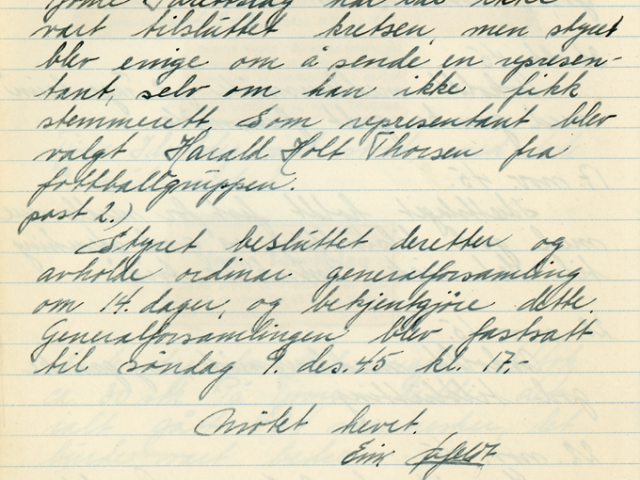 vært tilsluttet kretsen, men styret
blev enige om å sende en represen-
tant, selv om han ikke fikk
stemmerett. Som representant blev
valgt Harald Holt Thorsen fra
fottballgruppen.
post 2.)
Styret besluttet deretter og
avholde ordinær generalforsamling
om 14. dager, og bekjentgjøre dette.
Generalforsamlingen blev fastsatt
til søndag 9. des. 45 kl. 17,-
Møtet hevet.